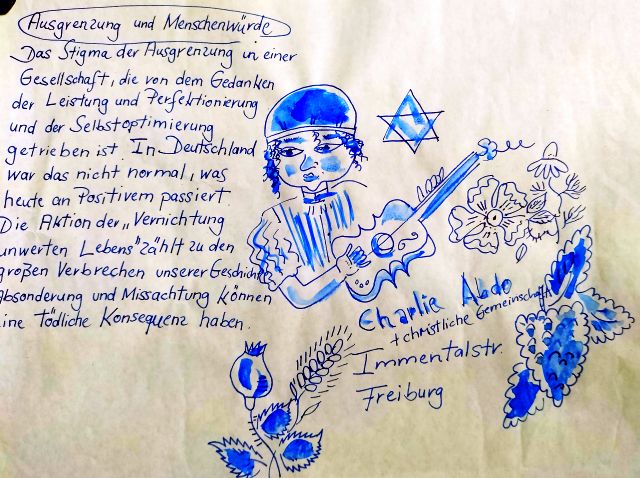 Ausgrenzung und Menschenwürde
Das Stigma der Ausgrenzung in einer
Gesellschaft, die von dem Gedanken
der Leistung und Perfektionierung
und der Selbstoptimierung
getrieben ist. In Deutschland
war das nicht normal, was
heute an Positivem passiert.
Die Aktion der „Vernichtung
unwerten Lebens" zählt zu den
großen Verbrechen unserer Geschichte
Absonderung und Missachtung können
eine Tödliche Konsequenz haben.
Charlie Abdo
+ christliche Gemeinschaft
Immentalstr.
Freiburg